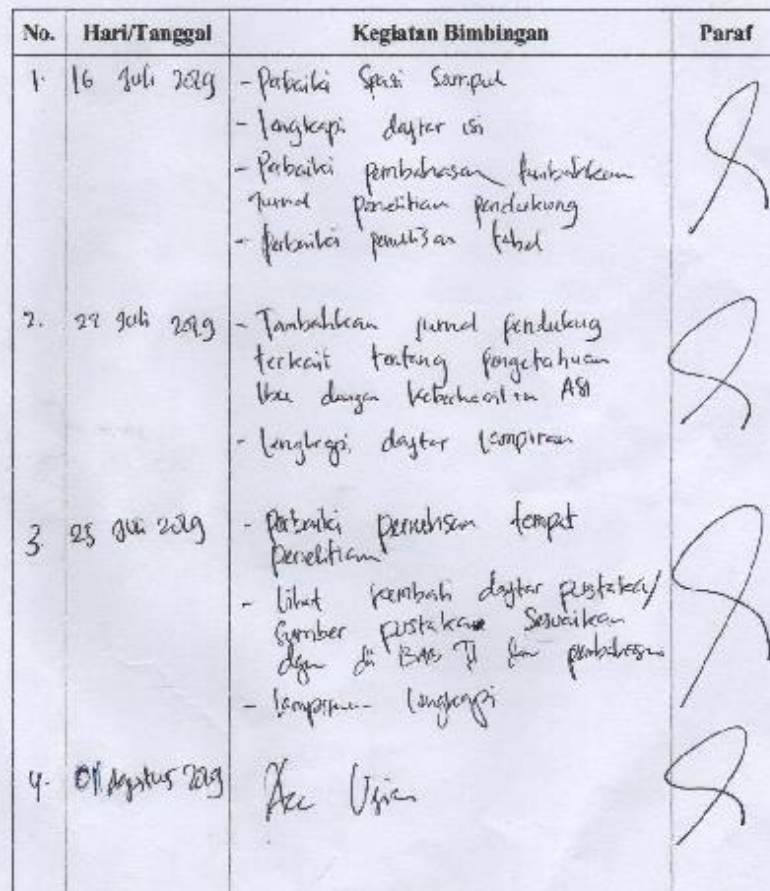 No. Hari/Tanggal Kegiatan Bimbingan Paraf
1. 16 Juli 2019 - Perbaiki Spasi Sampul
- lengkapi daftar isi
- Perbaiki pembahasan tambahkan
Jurnal penelitian pendukung
- perbaiki penulisan tabel
2. 22 Juli 2019 - Tambahkan jurnal pendukung
terkait tentang pengetahuan
Ibu dengan keberhasilan ASI
- lengkapi daftar lampiran
3. 25 Juli 2019 - Perbaiki penulisan tempat
penelitian
- Lihat kembali daftar pustaka/
Sumber pustaka Sesuaikan
dgn di BAB II dan pembahasan
- lampiran lengkapi
4. 01 Agustus 2019 Acc Ujian